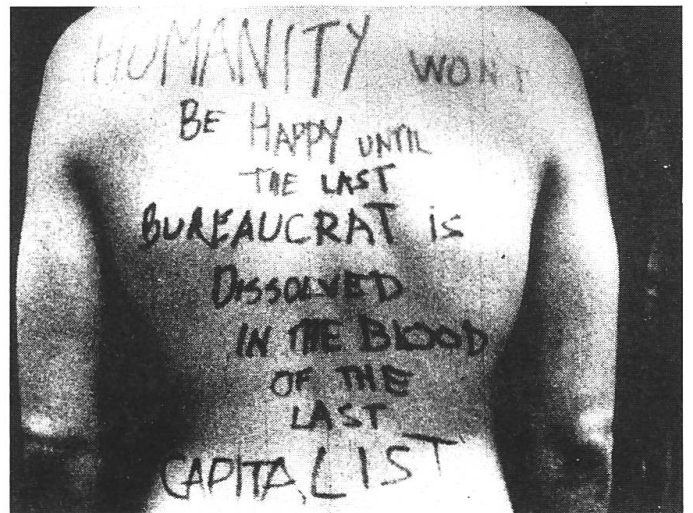 HUMANITY WONT
BE HAPPY UNTIL
THE LAST
BUREAUCRAT is
DISSOLVED
IN THE BLOOD
OF THE
LAST
CAPITALIST